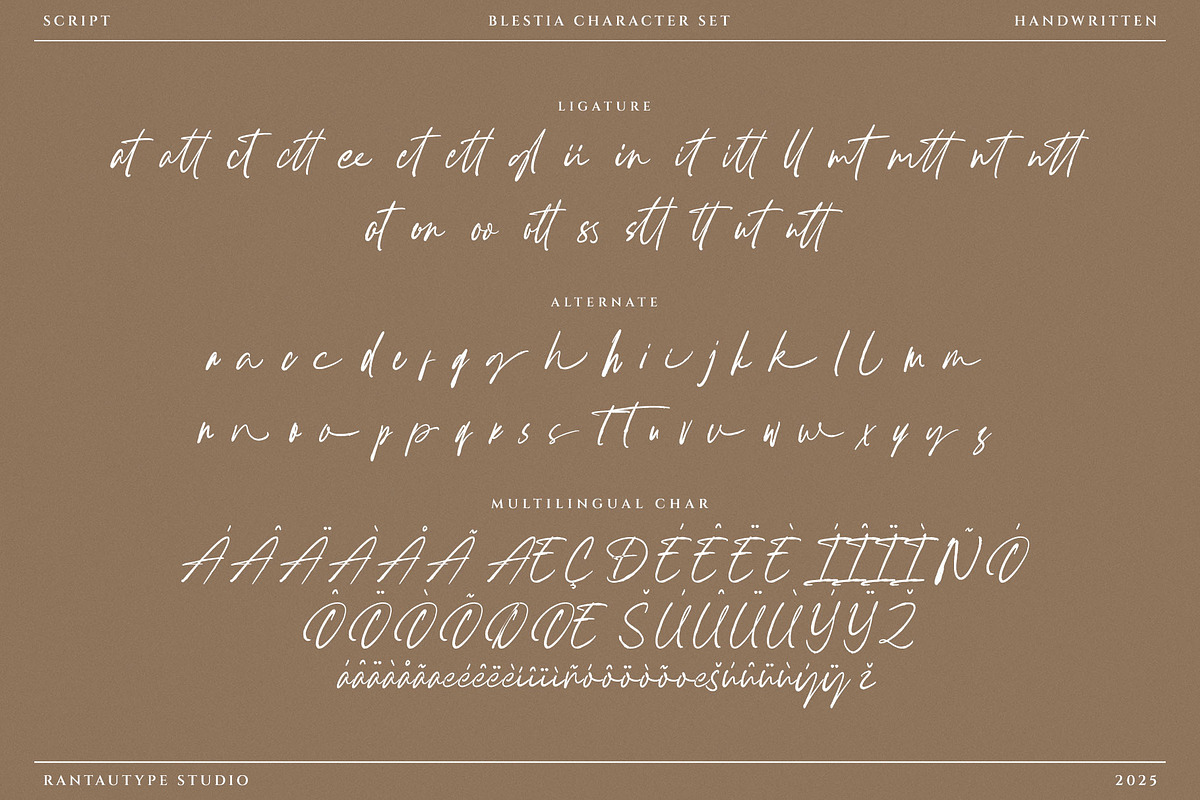 SCRIPT
BLESTIA CHARACTER SET
HANDWRITTEN
LIGATURE
at att ct ctt ee et ett gl ii in it itt ll mt mtt nt ntt
ot on oo ott ss stt tt ut utt
ALTERNATE
a a c c d e f g g h h i i j k k l l m m
n n o o p p q r s s t t u v v w w x y y z
MULTILINGUAL CHAR
Á Â Ä À Å Ã Æ Ç Ð É Ê Ë È Í Î Ï Ì Ñ Ó
Ô Ö Ò Õ Ø Œ Š Ú Û Ü Ù Ý Ÿ Ž
áâäàåãæéêëèíîïìñóôöòõœšúûüùýÿ ž
RANTAUTYPE STUDIO
2025